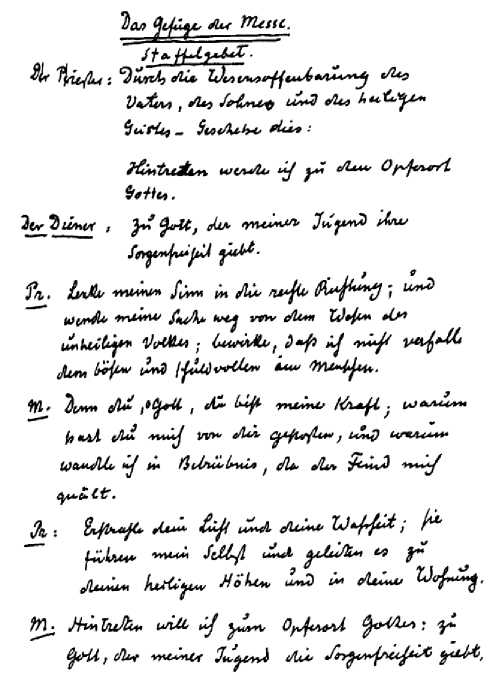 Das Gefüge der Messe.
Staffelgebet.
Der Priester: Durch die Wesensoffenbarung des
Vaters, des Sohnes und des heiligen
Geistes – Geschehe dies:
Hintreten werde ich zu dem Opferort
Gottes.
Der Diener: Zu Gott, der meiner Jugend ihre
Sorgenfreiheit giebt.
Pr. Lenke meinen Sinn in die rechte Richtung; und
wende meine Sache weg von dem Wesen des
unheiligen Volkes; bewirke, daß ich nicht verfalle
dem bösen und schuldvollen am Menschen.
M. Denn du, o Gott, du bist meine Kraft; warum
hast du mich von dir gestoßen, und warum
wandle ich in Betrübnis, da der Feind mich
quält.
Pr: Erstrahle dein Licht und deine Wahrheit; sie
führen mein Selbst und geleiten es zu
deinen heiligen Höhen und in deine Wohnung.
M. Hintreten will ich zum Opferort Gottes: zu
Gott, der meiner Jugend die Sorgenfreiheit giebt,